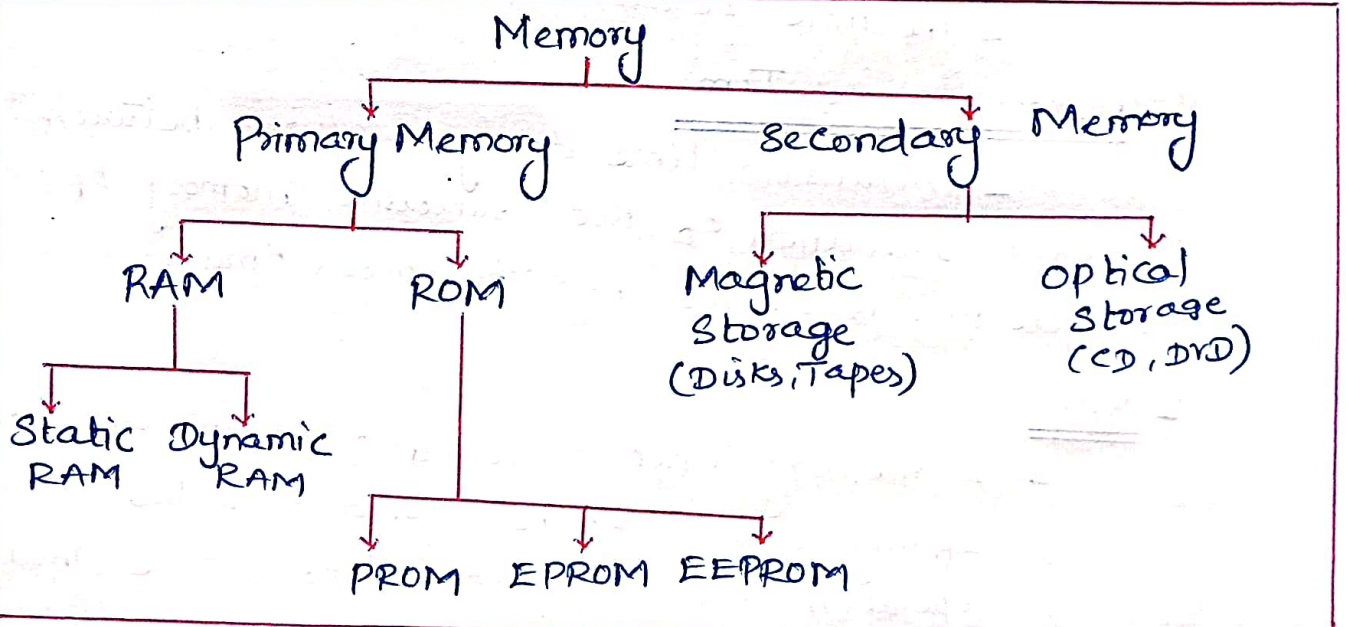 Memory
Primary Memory
Secondary Memory
RAM
ROM
Magnetic
Storage
(Disks, Tapes)
Optical
Storage
(CD, DVD)
Static
RAM
Dynamic
RAM
PROM EPROM EEPROM